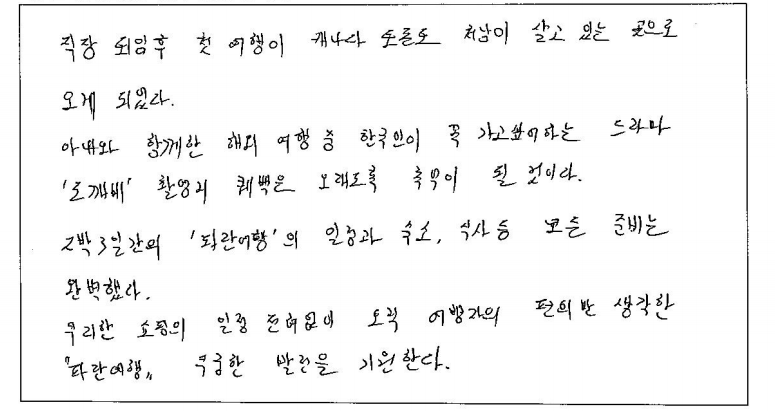 직장 퇴임후 첫 여행이 캐나다 토론토 처남이 살고 있는 곳으로
오게 되었다.
아내와 함께한 해외 여행 중 한국인이 꼭 가고싶어하는 드라마
'도깨비' 촬영지 퀘벡은 오래도록 추억이 될 것이다.
2박3일간의 '파란여행'의 일정과 숙소, 식사등 모든 준비는
완벽했다.
무리한 쇼핑의 일정 전혀없이 오직 여행자의 편의만 생각한
"파란여행" 무궁한 발전을 기원한다.